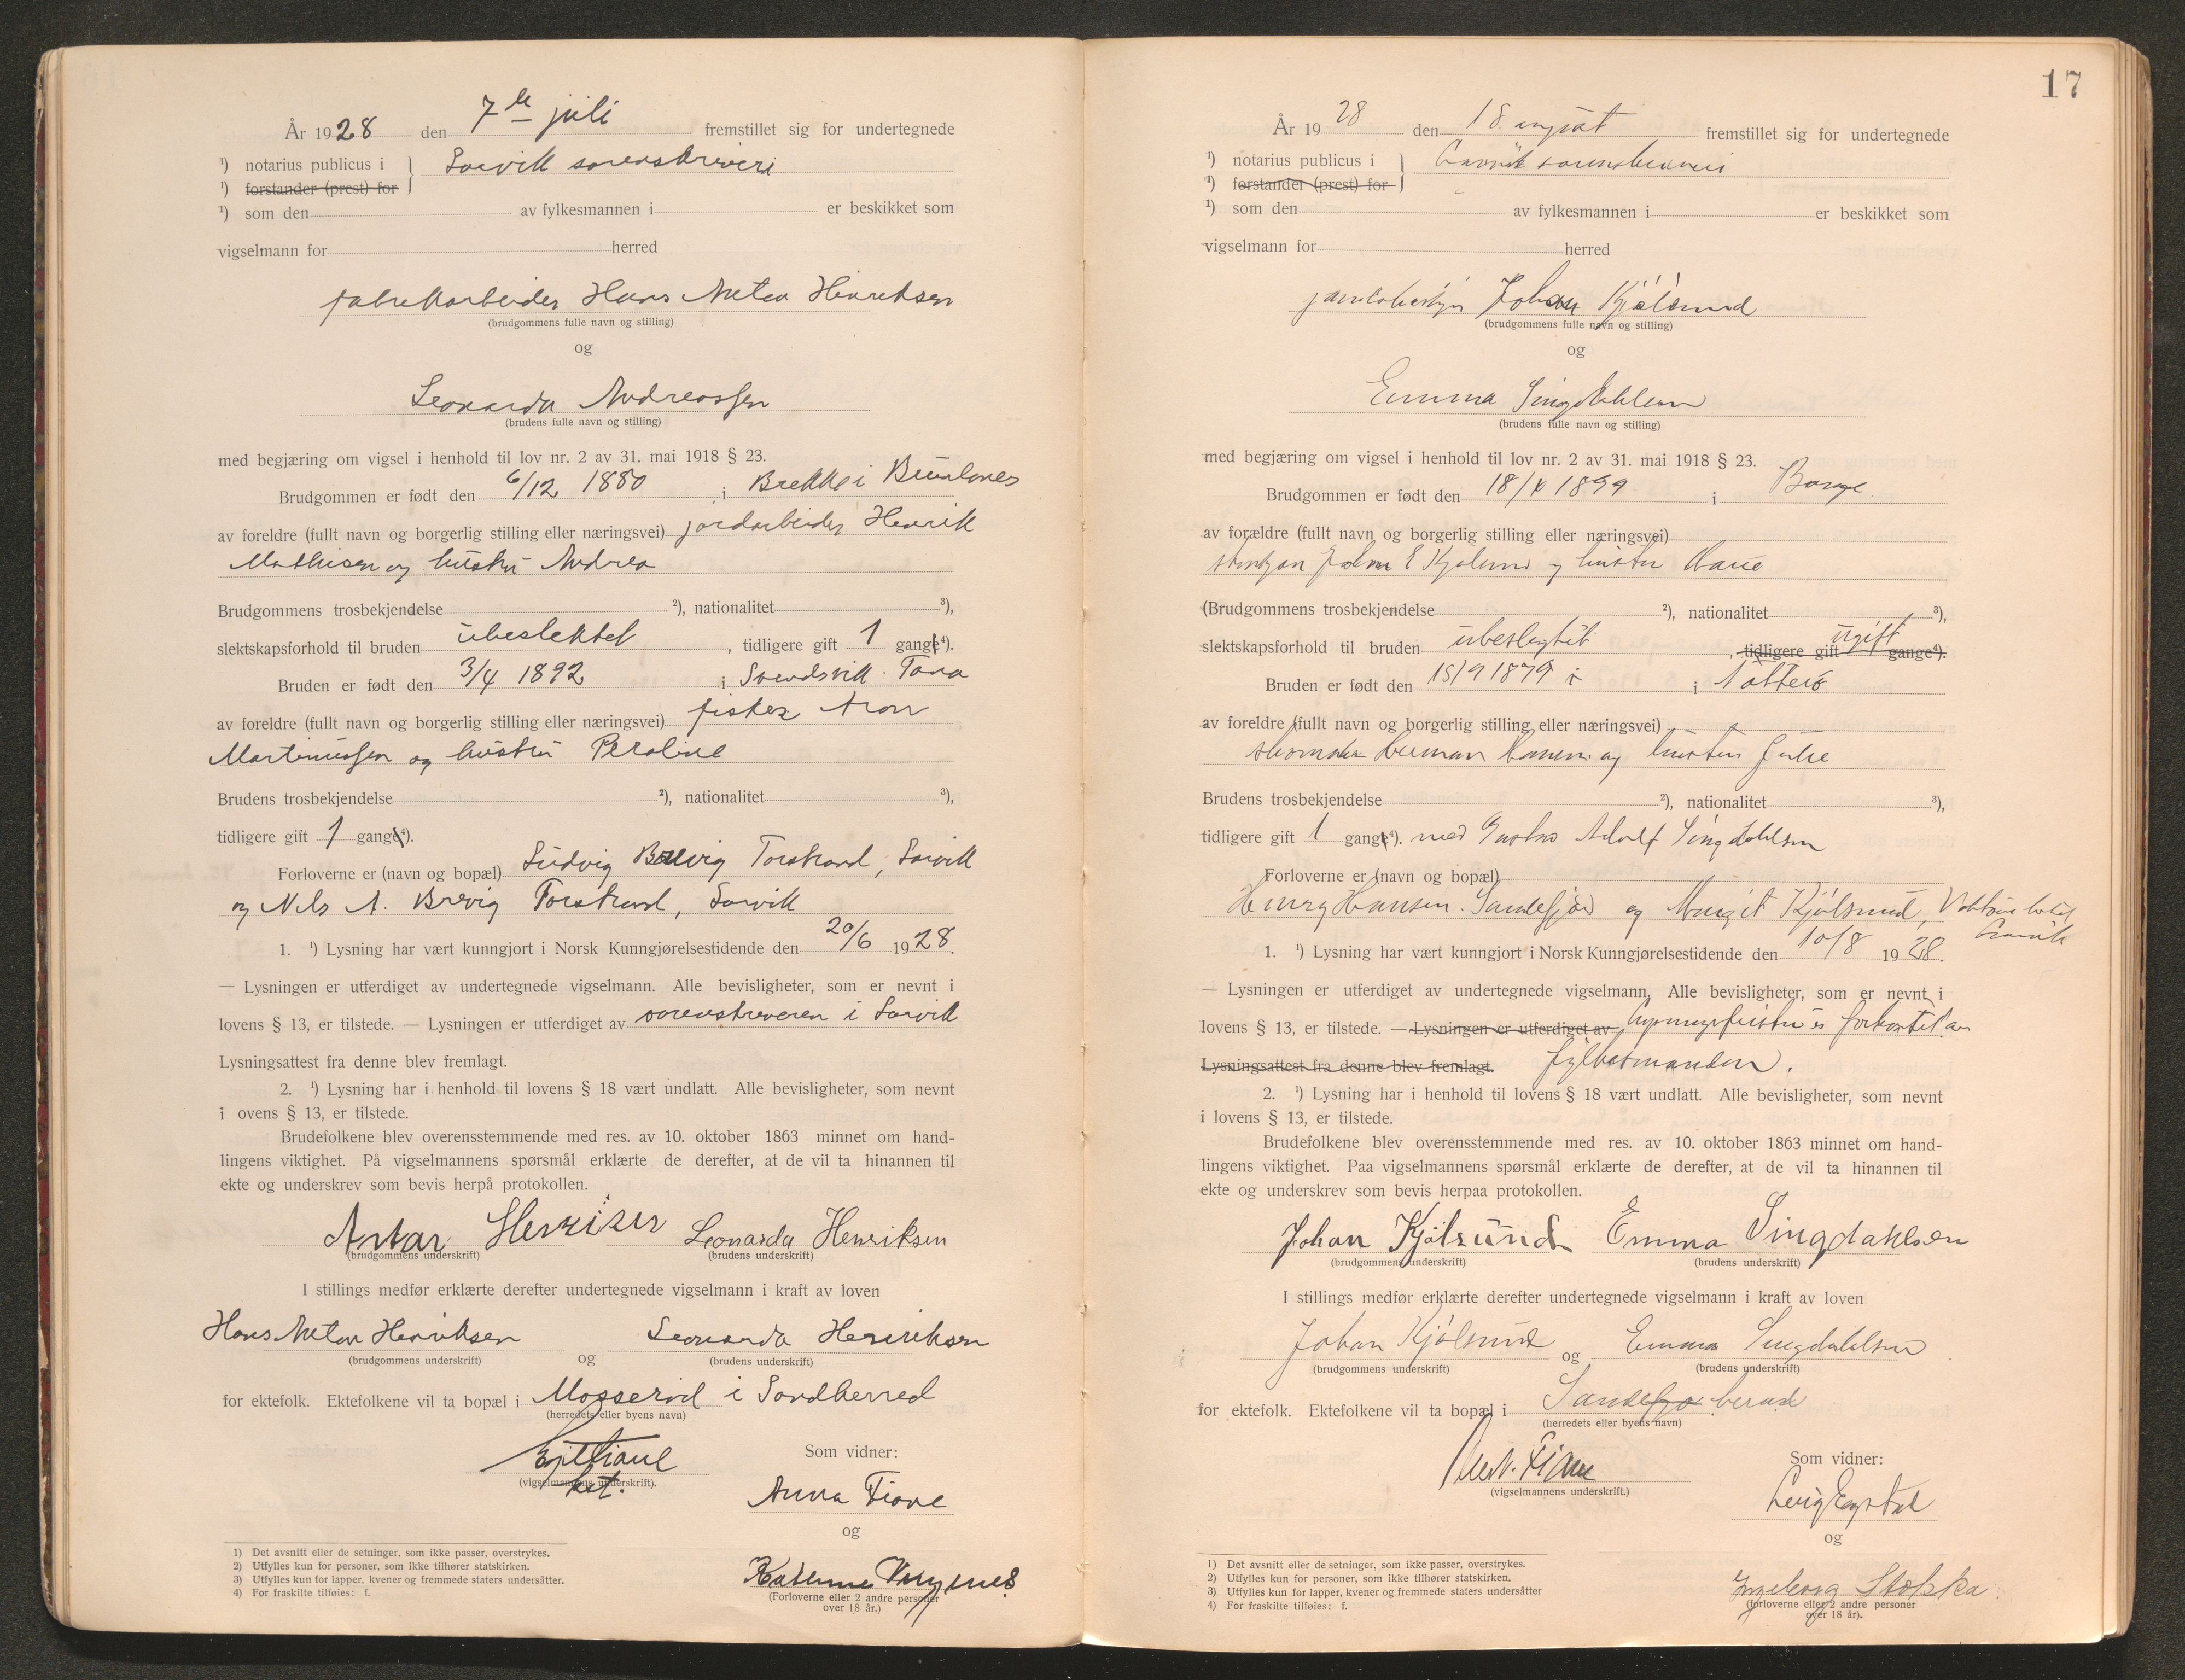 År 1928 den 7de juli fremstillet sig for undertegnede
¹) notarius publicus i Larvik sorenskriveri
¹) forstander (prest) for
¹) som den av fylkesmannen i er beskikket som
vigselmann for herred
fabrikkarbeider Hans Anton Henriksen
(brudgommens fulle navn og stilling)
og
Leonarda Andreassen
(brudens fulle navn og stilling)
med begjæring om vigsel i henhold til lov nr. 2 av 31. mai 1918 § 23.
Brudgommen er født den 6/12 1880 i Brekke i Brunlanes
av foreldre (fullt navn og borgerlig stilling eller næringsvei) jordarbeider Henrik
Mathisen og hustru Andrea
Brudgommens trosbekjendelse ²), nationalitet ³),
slektskapsforhold til bruden ubeslektet, tidligere gift 1 gange⁴).
Bruden er født den 3/4 1892 i Svendsvik. Tana
av foreldre (fullt navn og borgerlig stilling eller næringsvei) fisker Aron
Martinussen og hustru Peraline
Brudens trosbekjendelse ²), nationalitet ³),
tidligere gift 1 gange⁴).
Forloverne er (navn og bopæl) Ludvig Brevig Torstrand, Larvik
og Nils A. Brevig Torstrand, Larvik
1. ¹) Lysning har vært kunngjort i Norsk Kunngjørelsestidende den 20/6 1928.
— Lysningen er utferdiget av undertegnede vigselmann. Alle bevisligheter, som er nevnt i
lovens § 13, er tilstede. — Lysningen er utferdiget av sorenskriveren i Larvik
Lysningsattest fra denne blev fremlagt.
2. ¹) Lysning har i henhold til lovens § 18 vært undlatt. Alle bevisligheter, som nevnt
i ovens § 13, er tilstede.
Brudefolkene blev overensstemmende med res. av 10. oktober 1863 minnet om hand-
lingens viktighet. På vigselmannens spørsmål erklærte de derefter, at de vil ta hinannen til
ekte og underskrev som bevis herpå protokollen.
Leonarda Henriksen
(brudgommens underskrift) (brudens underskrift)
I stillings medfør erklærte derefter undertegnede vigselmann i kraft av loven
Hans Anton Henriksen og Leonarda Henriksen
(brudgommens underskrift) (brudens underskrift)
for ektefolk. Ektefolkene vil ta bopæl i Mosserød i Sandherred
(herredets eller byens navn)
(vigselmannens underskrift).
Som vidner:
Anna Fiane
og
(Forloverne eller 2 andre personer
over 18 år.)
1) Det avsnitt eller de setninger, som ikke passer, overstrykes.
2) Utfylles kun for personer, som ikke tilhører statskirken.
3) Utfylles kun for lapper, kvener og fremmede staters undersåtter.
4) For fraskilte tilføies: f.
17
År 1928 den 18 august fremstillet sig for undertegnede
¹) notarius publicus i Larvik sorenskriveri
¹) forstander (prest) for
¹) som den av fylkesmannen i er beskikket som
vigselmann for herred
Johan Kjølsund
(brudgommens fulle navn og stilling)
og
Emma Singdahlsen
(brudens fulle navn og stilling)
med begjæring om vigsel i henhold til lov nr. 2 av 31. mai 1918 § 23.
Brudgommen er født den 1899 i
av forældre (fullt navn og borgerlig stilling eller næringsvei)
E Kjølsund og hustru
(Brudgommens trosbekjendelse ²), nationalitet ³),
slektskapsforhold til bruden ubeslegtet, tidligere gift gange⁴). ugift
Bruden er født den 15/9 1879 i Nøtterø
av foreldre (fullt navn og borgerlig stilling eller næringsvei)
Herman Hansen og hustru Julie
Brudens trosbekjendelse ²), nationalitet ³),
tidligere gift 1 gange⁴). med Gustav Adolf Singdahlsen
Forloverne er (navn og bopæl)
Henry Hansen. Sandefjord og Margit Kjølsund, Larvik
1. ¹) Lysning har vært kunngjort i Norsk Kunngjørelsestidende den 10/8 1928.
— Lysningen er utferdiget av undertegnede vigselmann, Alle bevisligheter, som er nevnt i
lovens § 13, er tilstede. — Lysningen er utferdiget av lysningsfristen er forkortet av
Lysningsattest fra denne blev fremlagt. fylkesmanden.
2. ¹) Lysning har i henhold til lovens § 18 vært undlatt. Alle bevisligheter, som nevnt
i lovens § 13, er tilstede.
Brudefolkene blev overensstemmende med res. av 10. oktober 1863 minnet om hand-
lingens viktighet. Paa vigselmannens spørsmål erklærte de derefter, at de vil ta hinannen til
ekte og underskrev som bevis herpaa protokollen.
Johan Kjølsund Emma Singdahlsen
(brudgommens underskrift) (brudens underskrift)
I stillings medfør erklærte derefter undertegnede vigselmann i kraft av loven
Johan Kjølsund og Emma Singdahlsen
(brudgommens underskrift) (brudens underskrift)
for ektefolk. Ektefolkene vil ta bopæl i
(herredets eller byens navn)
Fiane
(vigselmannens underskrift.)
Som vidner:
og
Ingeborg Stokka
(forloverne eller 2 andre personer
over 18 år).
1) Det avsnitt eller de setninger, som ikke passer, overstrykes.
2) Utfylles kun for personer, som ikke tilhører statskirken.
3) Utfylles kun for lapper, kvener og fremmede staters undersåtter
4) For fraskilte tilføies: f.